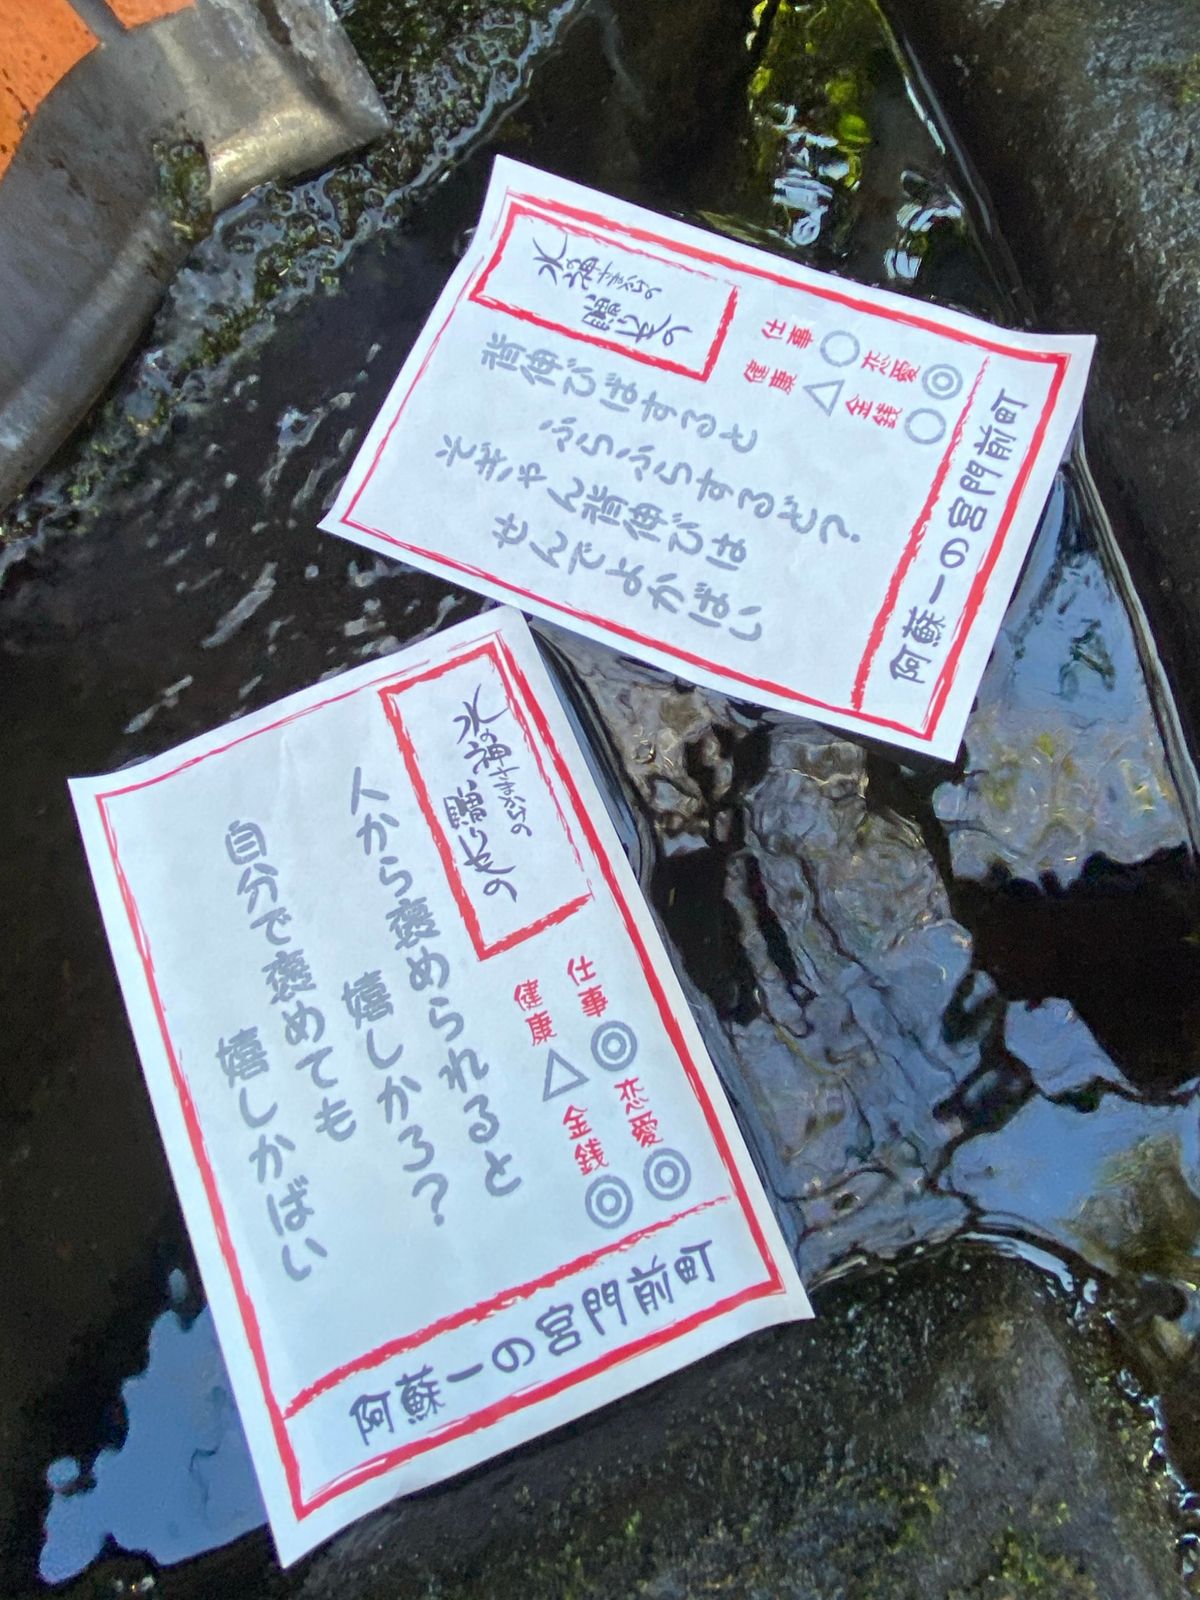 水の神さまからの
贈りもの
仕事○ 恋愛◎
健康△ 金銭○
背伸びばすると
ふらふらするど?
そぎゃん背伸びは
せんでよかばい
阿蘇一の宮門前町
水の神さまからの
贈りもの
仕事◎ 恋愛◎
健康△ 金銭◎
人から褒められると
嬉しかろ?
自分で褒めても
嬉しかばい
阿蘇一の宮門前町